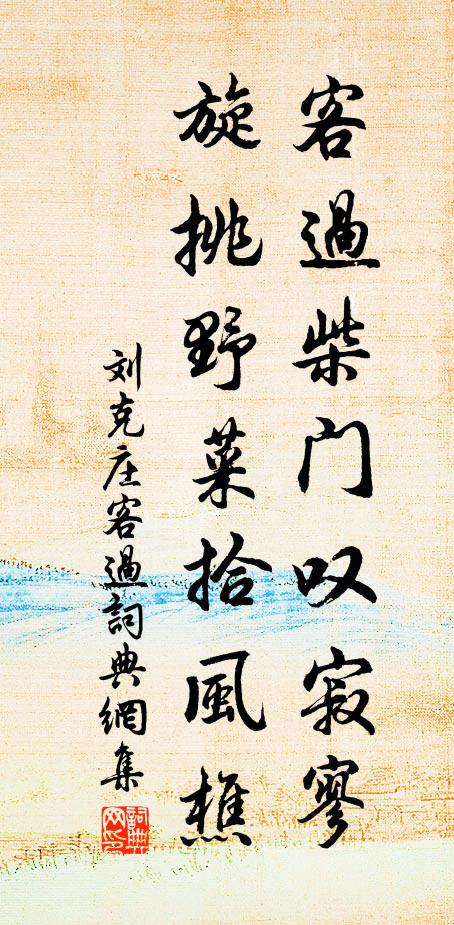 客過柴门叹寂寥
旋挑野菜拾風樵
刘克庄客過詞典網集
詞典网印